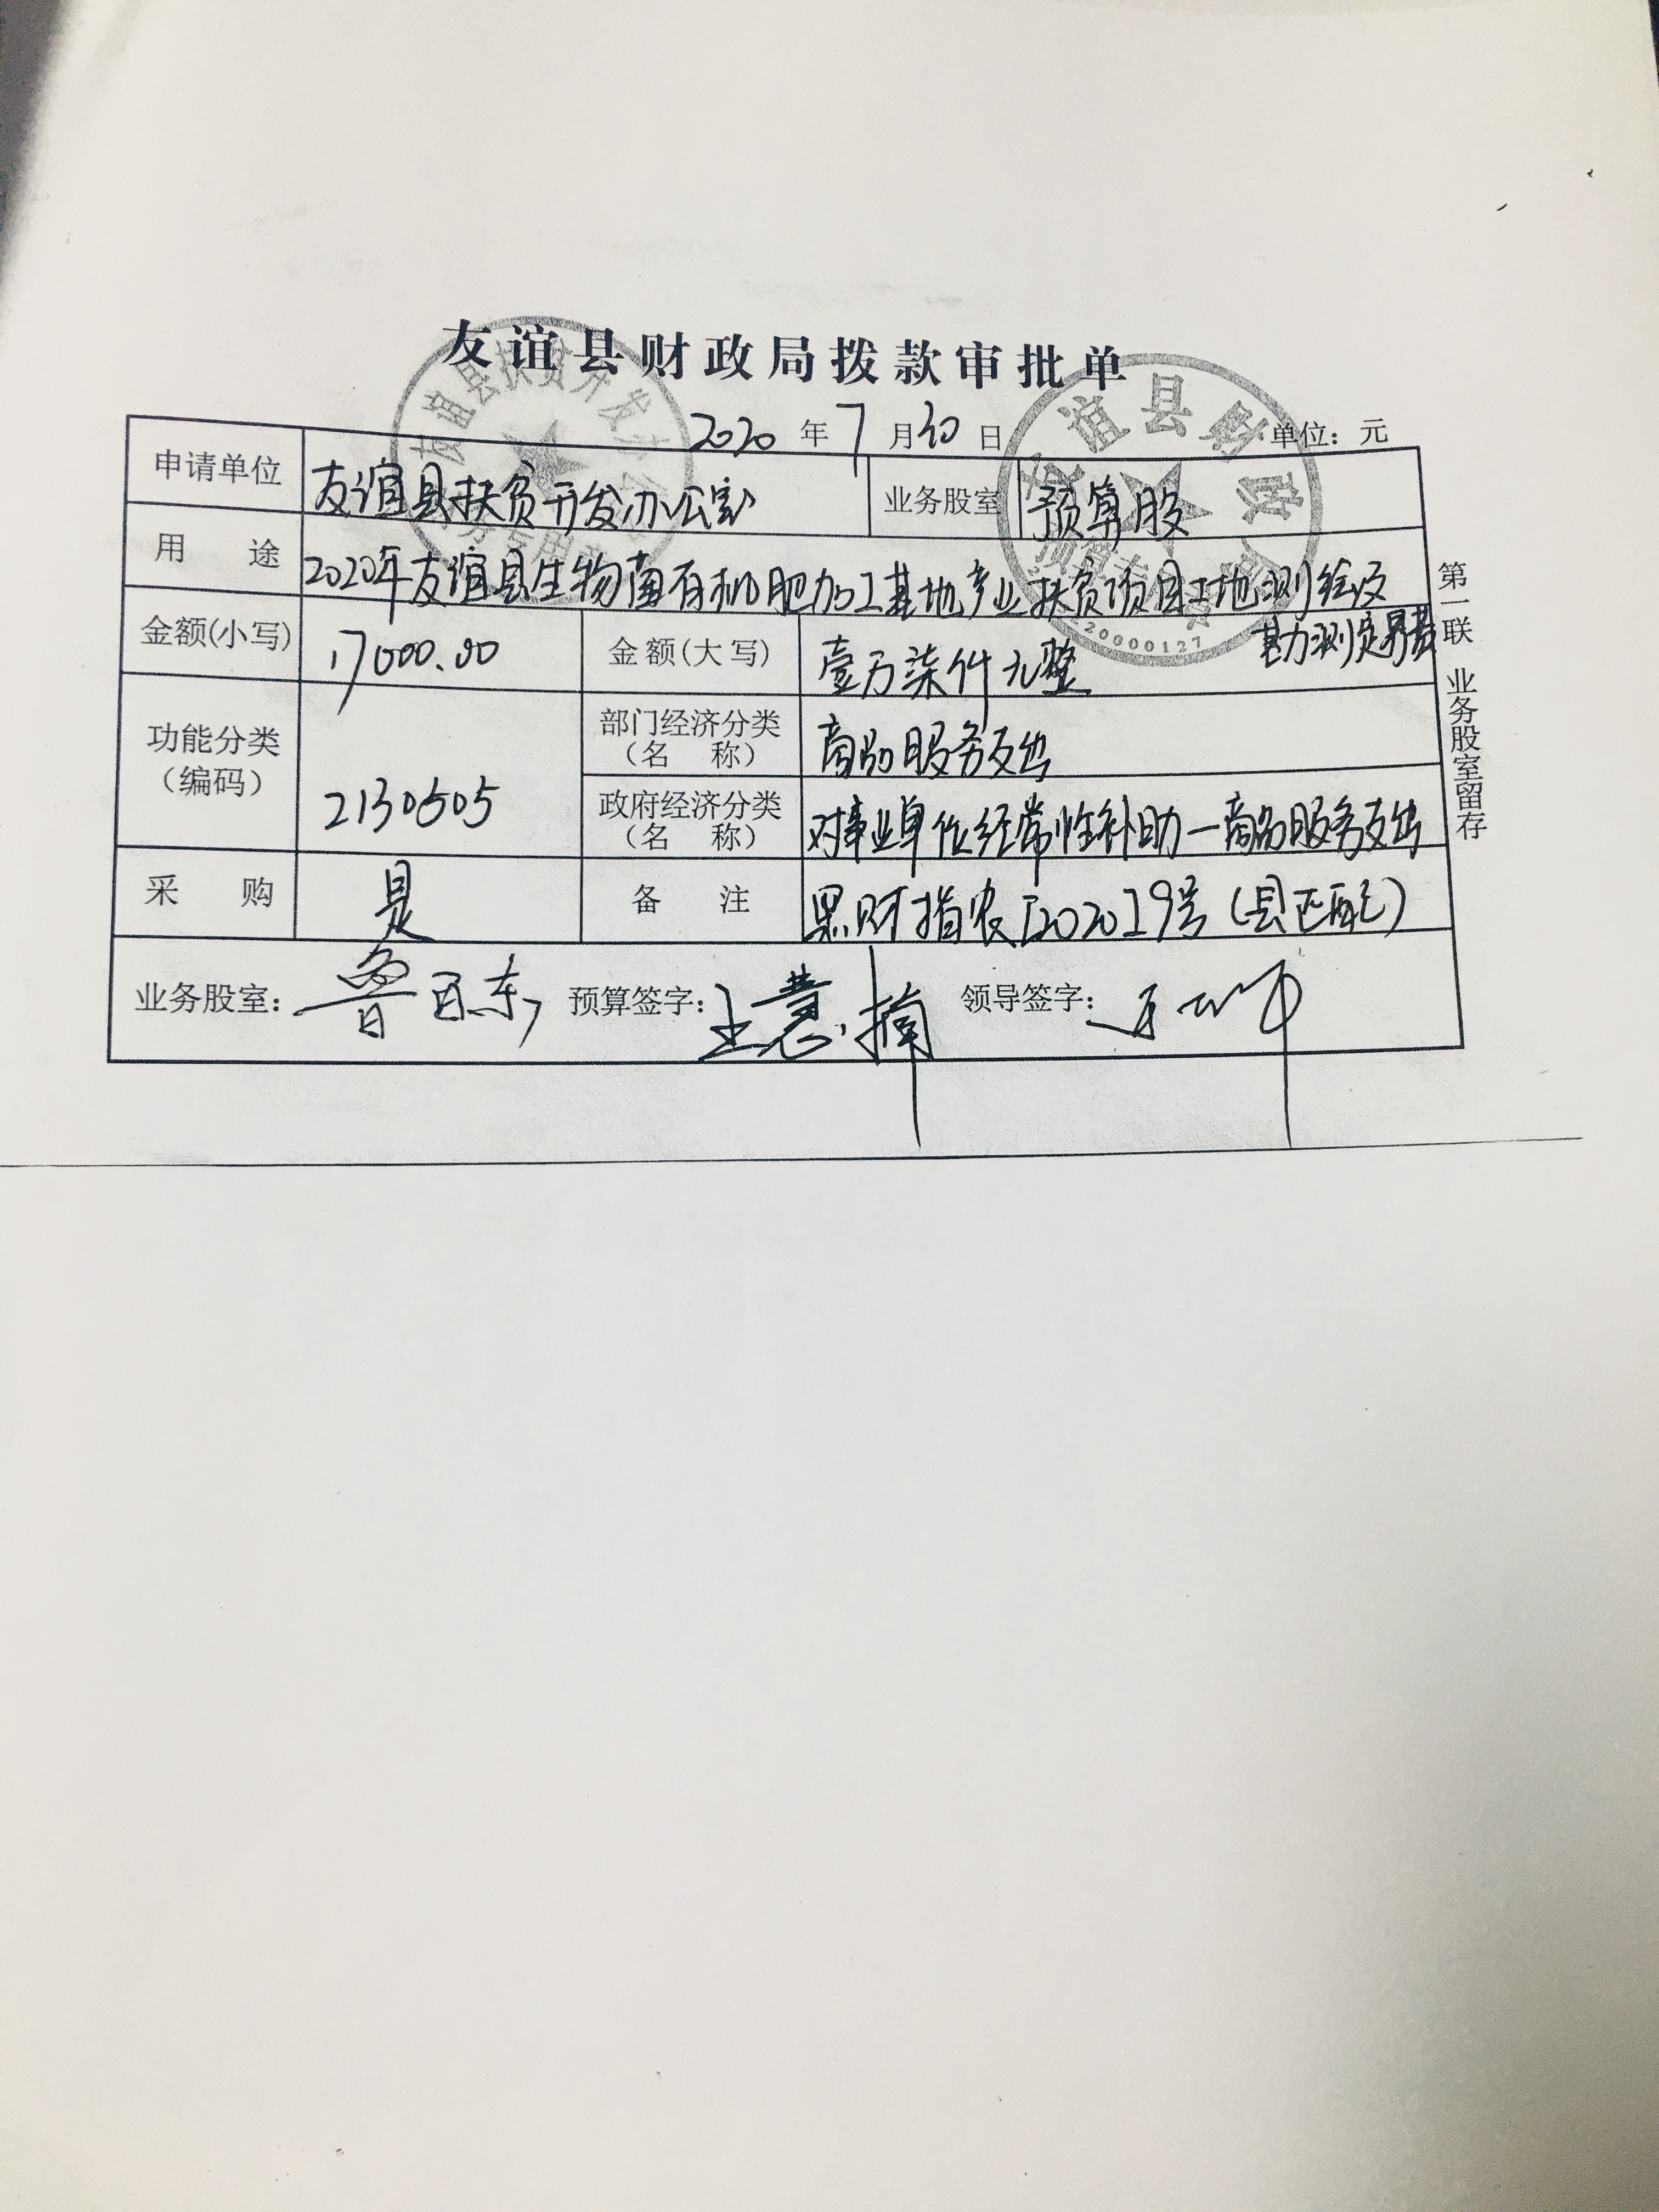 友谊县财政局拨款审批单
2020 年 7 月 30 日 单位：元
申请单位 友谊县扶贫开发办公室 业务股室 预算股
用 途 2020年友谊县生物菌有机肥加工基地产业扶贫项目土地测绘及
勘测定界费
金额(小写) 17000.00 金额(大写) 壹万柒仟元整
功能分类
（编码） 2130505
部门经济分类
（名 称） 商品服务支出
政府经济分类
（名 称） 对事业单位经常性补助—商品服务支出
采 购 是 备 注 黑财指农[2020]9号（县匹配）
业务股室： 鲁百东 预算签字： 王慧楠 领导签字：
第一联 业务股室留存
友谊县扶贫开发办公
友谊县财政局
预算专
20000127